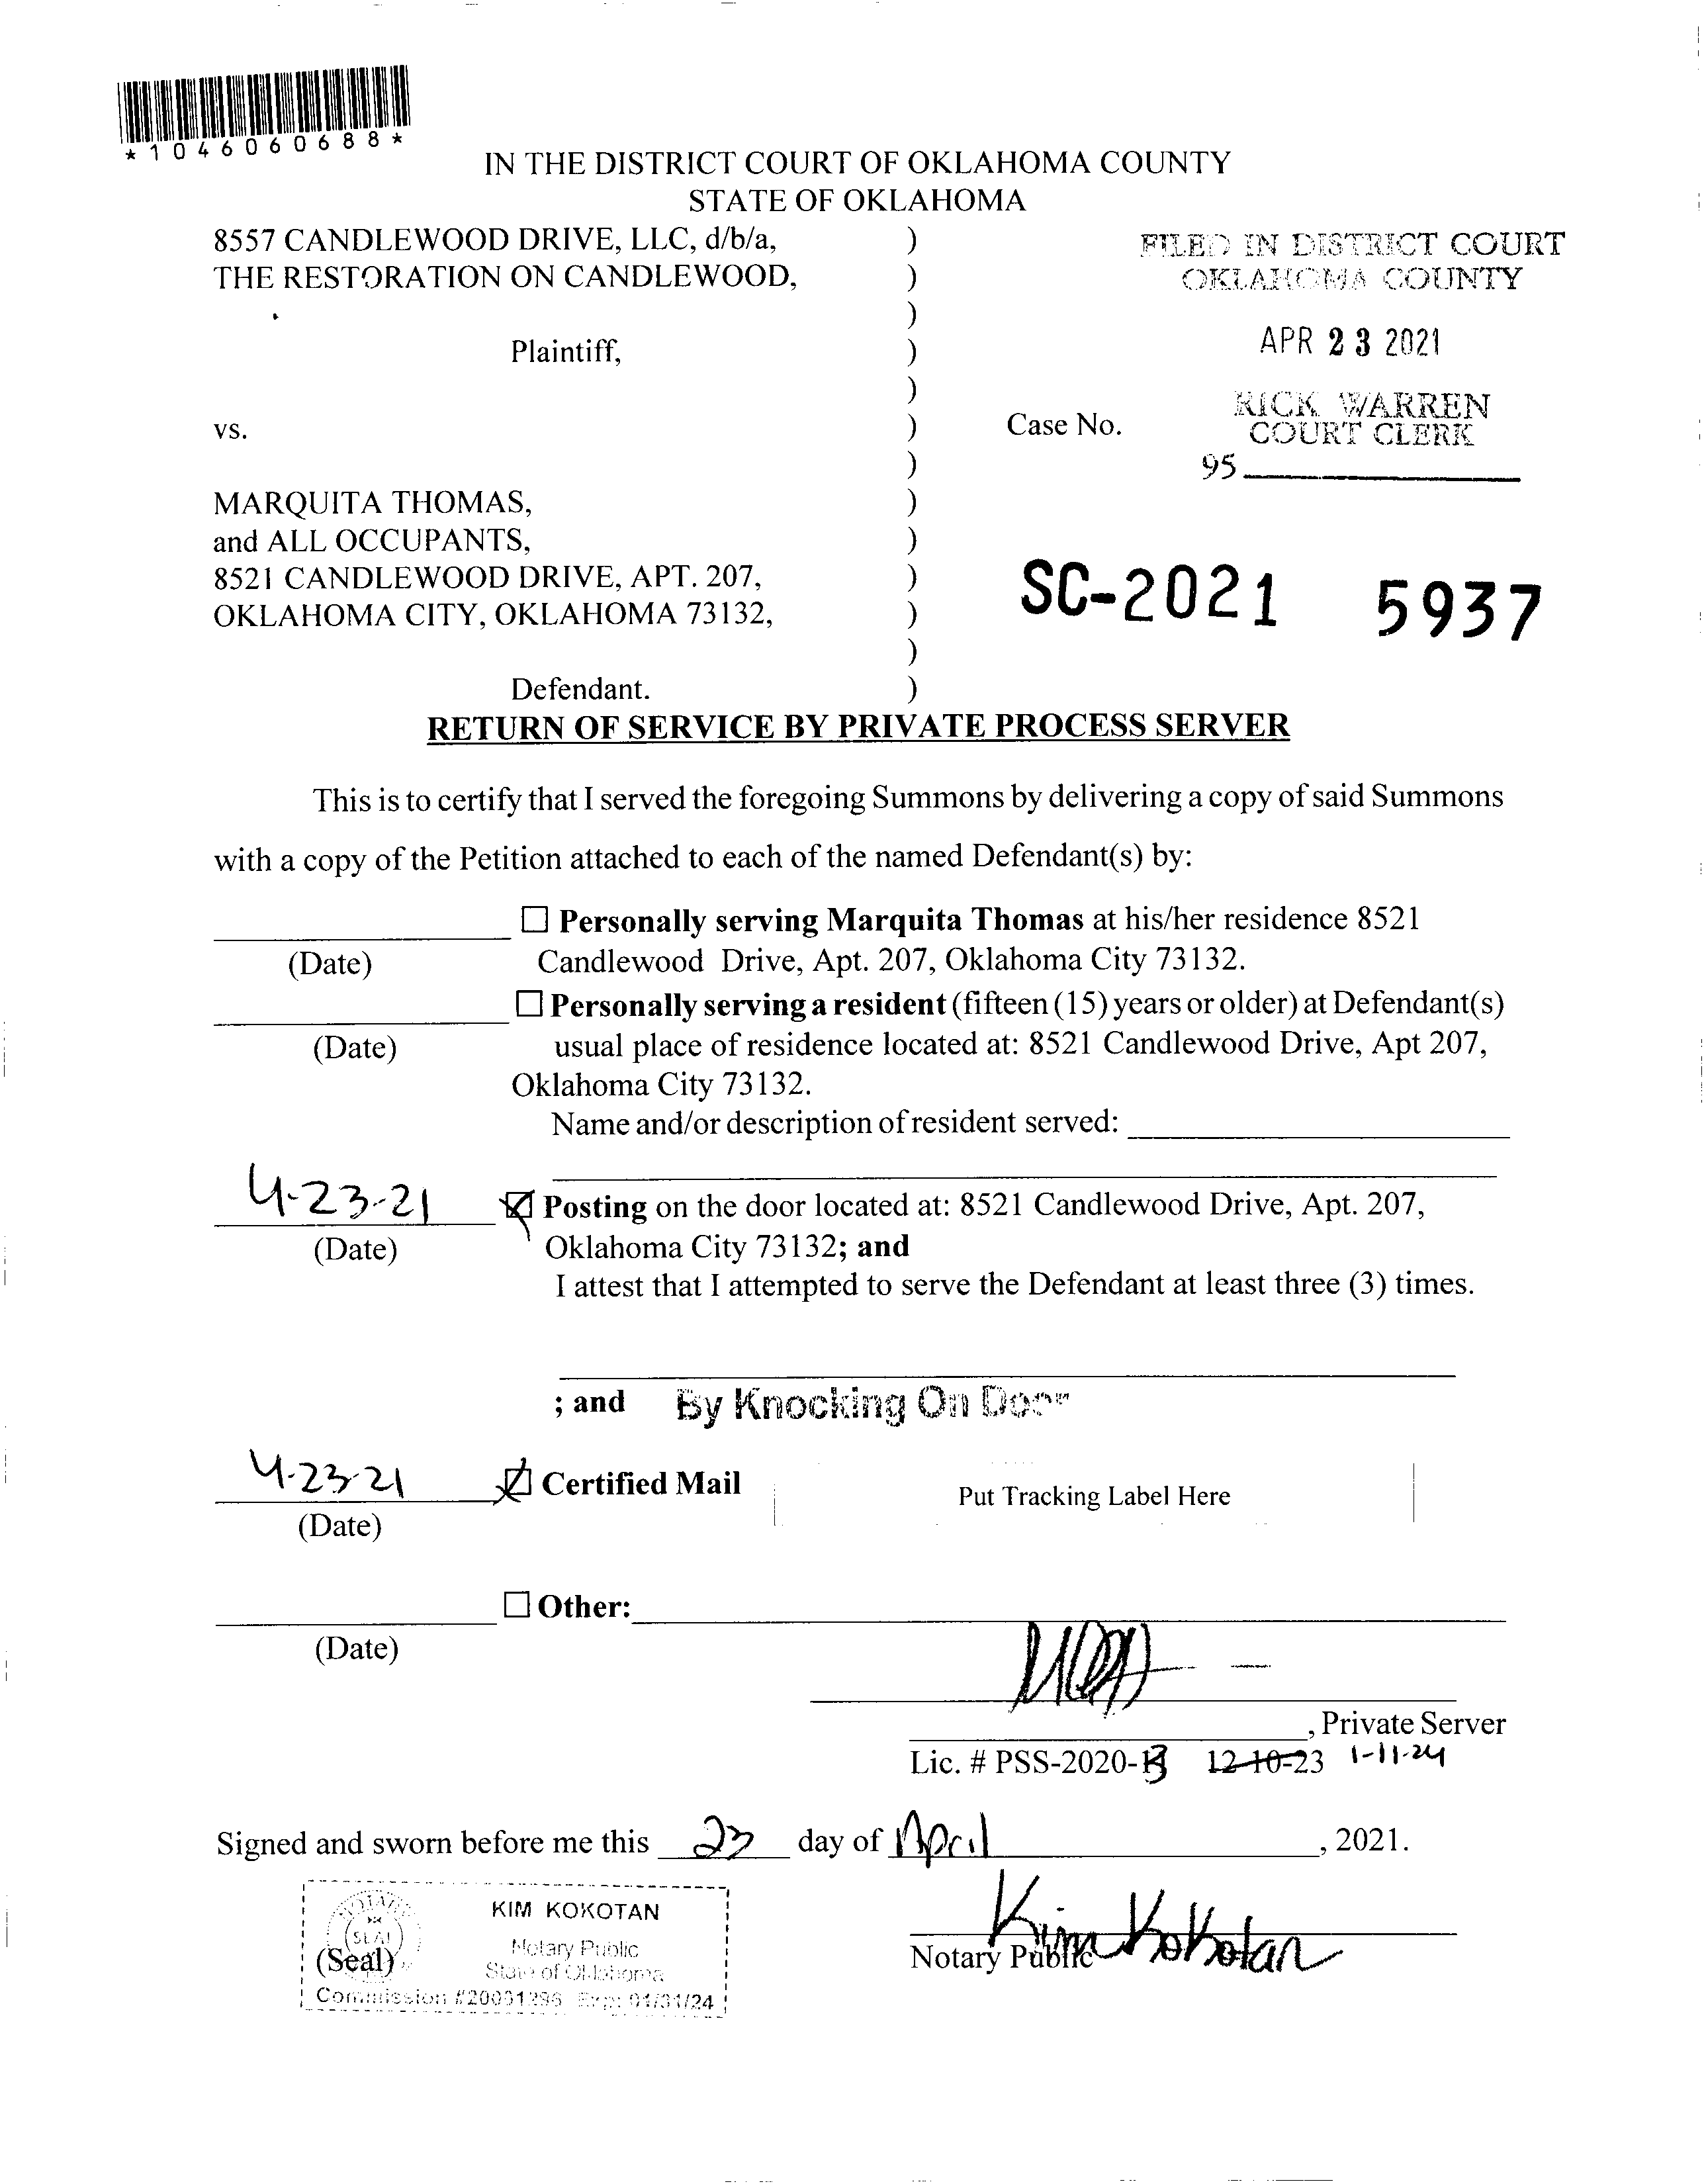 *1046060688*
IN THE DISTRICT COURT OF OKLAHOMA COUNTY
STATE OF OKLAHOMA
8557 CANDLEWOOD DRIVE, LLC, d/b/a, )
THE RESTORATION ON CANDLEWOOD, )
)
Plaintiff, )
)
vs. )
)
MARQUITA THOMAS, )
and ALL OCCUPANTS, )
8521 CANDLEWOOD DRIVE, APT. 207, )
OKLAHOMA CITY, OKLAHOMA 73132, )
)
Defendant. )
FILED IN DISTRICT COURT
OKLAHOMA COUNTY
APR 23 2021
RICK WARREN
COURT CLERK
Case No.
95
SC-2021 5937
RETURN OF SERVICE BY PRIVATE PROCESS SERVER
This is to certify that I served the foregoing Summons by delivering a copy of said Summons
with a copy of the Petition attached to each of the named Defendant(s) by:
☐ Personally serving Marquita Thomas at his/her residence 8521
(Date) Candlewood Drive, Apt. 207, Oklahoma City 73132.
☐ Personally serving a resident (fifteen (15) years or older) at Defendant(s)
(Date) usual place of residence located at: 8521 Candlewood Drive, Apt 207,
Oklahoma City 73132.
Name and/or description of resident served:
4-23-21 ☒ Posting on the door located at: 8521 Candlewood Drive, Apt. 207,
(Date) Oklahoma City 73132; and
I attest that I attempted to serve the Defendant at least three (3) times.
; and By Knocking On Door
4-23-21 ☒ Certified Mail Put Tracking Label Here
(Date)
☐ Other:
(Date)
, Private Server
Lic. # PSS-2020-13 12-10-23 1-11-24
Signed and sworn before me this 23 day of April, 2021.
KIM KOKOTAN
Notary Public
State of Oklahoma
SEAL
(Seal)
Commission Exp: 01/31/24
Kim Kokotan
Notary Public